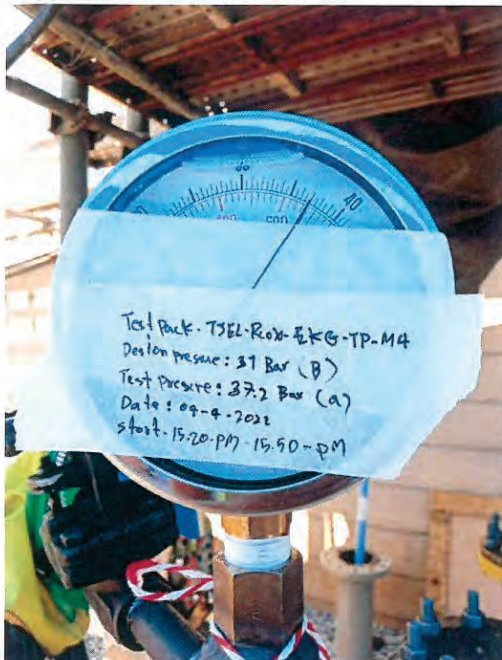 30
40
500
Test pack - TJEL-Row-EKG-TP-M4
Design presure: 31 Bar (B)
Test presure: 37.2 Bar (a)
Date: 04-4-2022
start-15.20-PM-15.50-PM